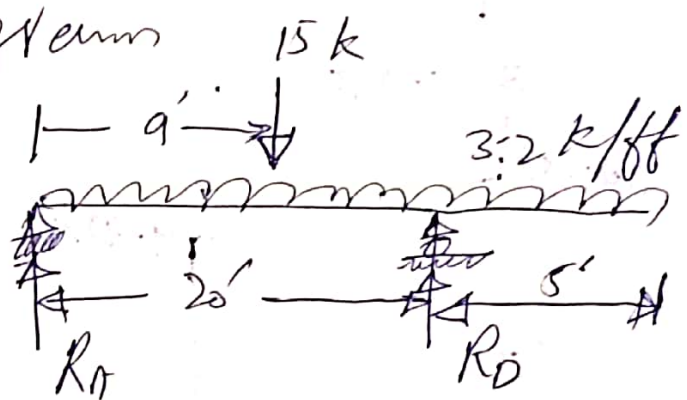 15 k
9'
3.2 k/ft
20'
5'
R_A
R_D